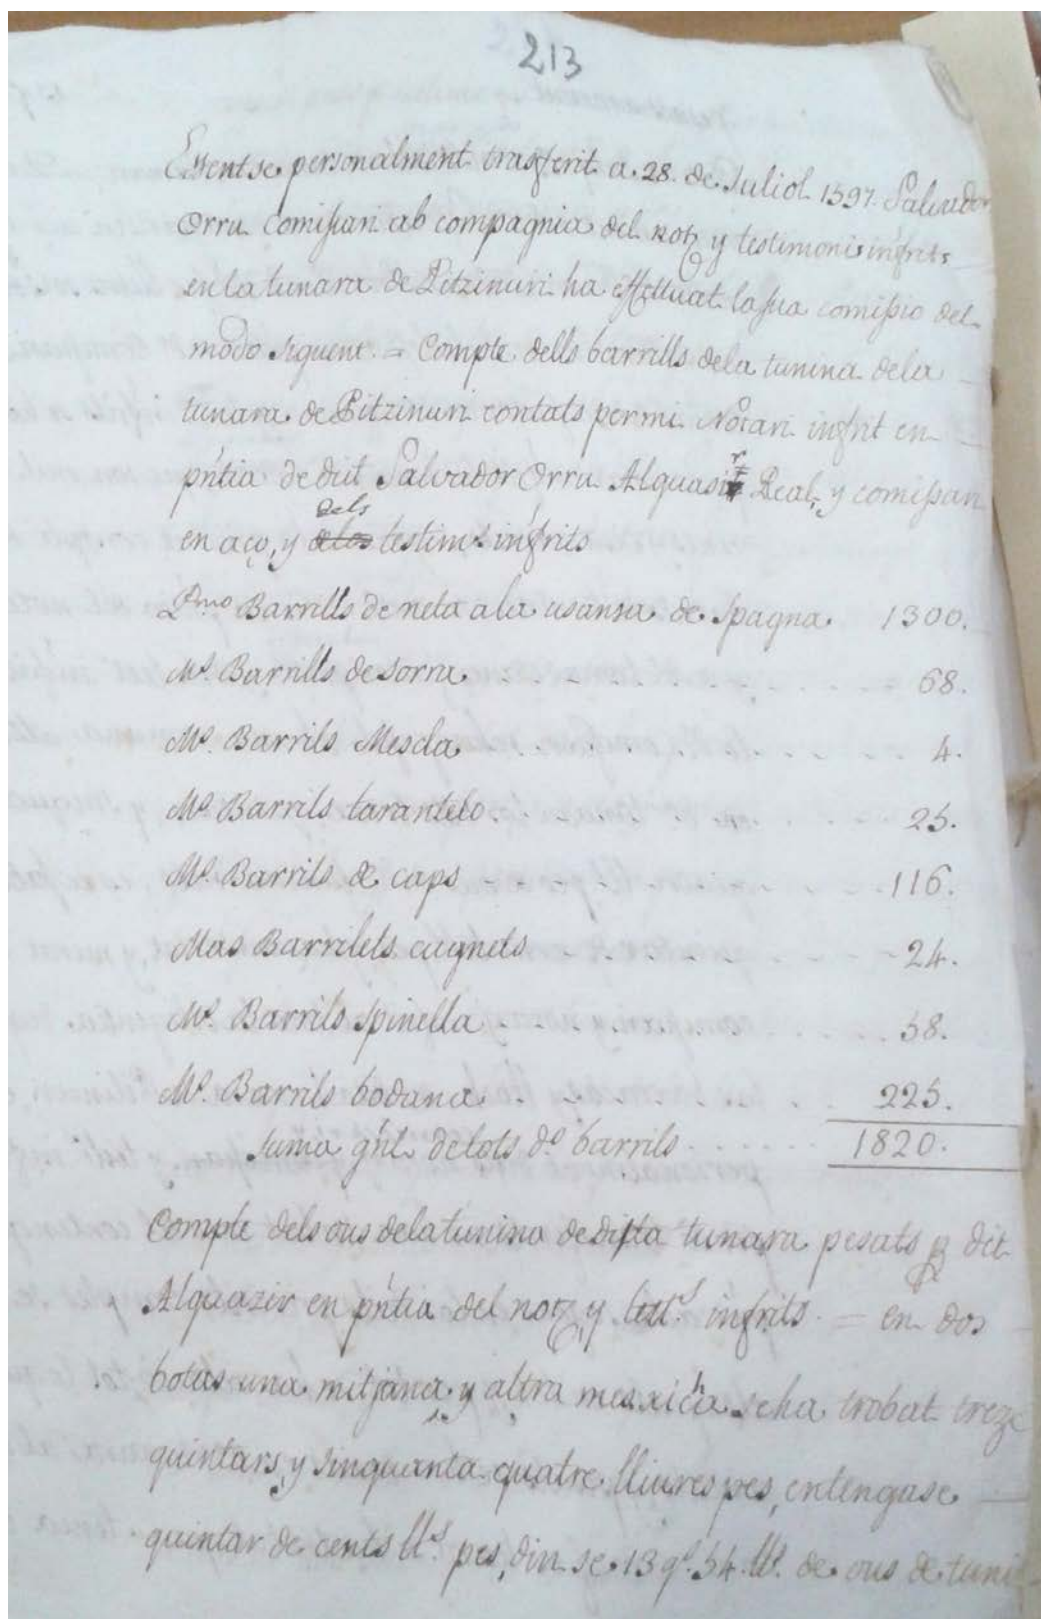 213
Essent se personalment trasferit a 28. de Juliol 1597. Salvador
Orru Comissari ab compagnia del not.y testimonis infrits
en la tunara de Pitzinurri ha effettuat la sua comissio del
modo siguent = Compte dells barrills de la tunina de la
tunara de Pitzinurri contats per mi Notari infrit en
pñtia de dit Salvador Orru Alguasir Real, y comissari
en aço, y dels testim.s infrits
P.mo Barrills de neta a la usansa de Spagna. 1300.
M.s Barrills de sorra. 68.
M.s Barrils Mescla. 4.
M.s Barrils tarantelo. 25.
M.s Barrils de caps 116.
Mas Barrilets cugnets 24.
M.s Barrils spinella 58.
M.s Barrils bodana. 225.
suma gñl. de tots d.s barrils 1820.
Compte dels ous de la tunina de dita tunara pesats p dit
Alguazir en pñtia del not. y test.s infrits = en dos
botas una mitjana y altra mes xicha se ha trobat treze
quintars, y sinquanta quatre lliures pes, entengase
quintar de cents ll.s pes, diu se 13 q.s 54. ll.s de ous de tuni